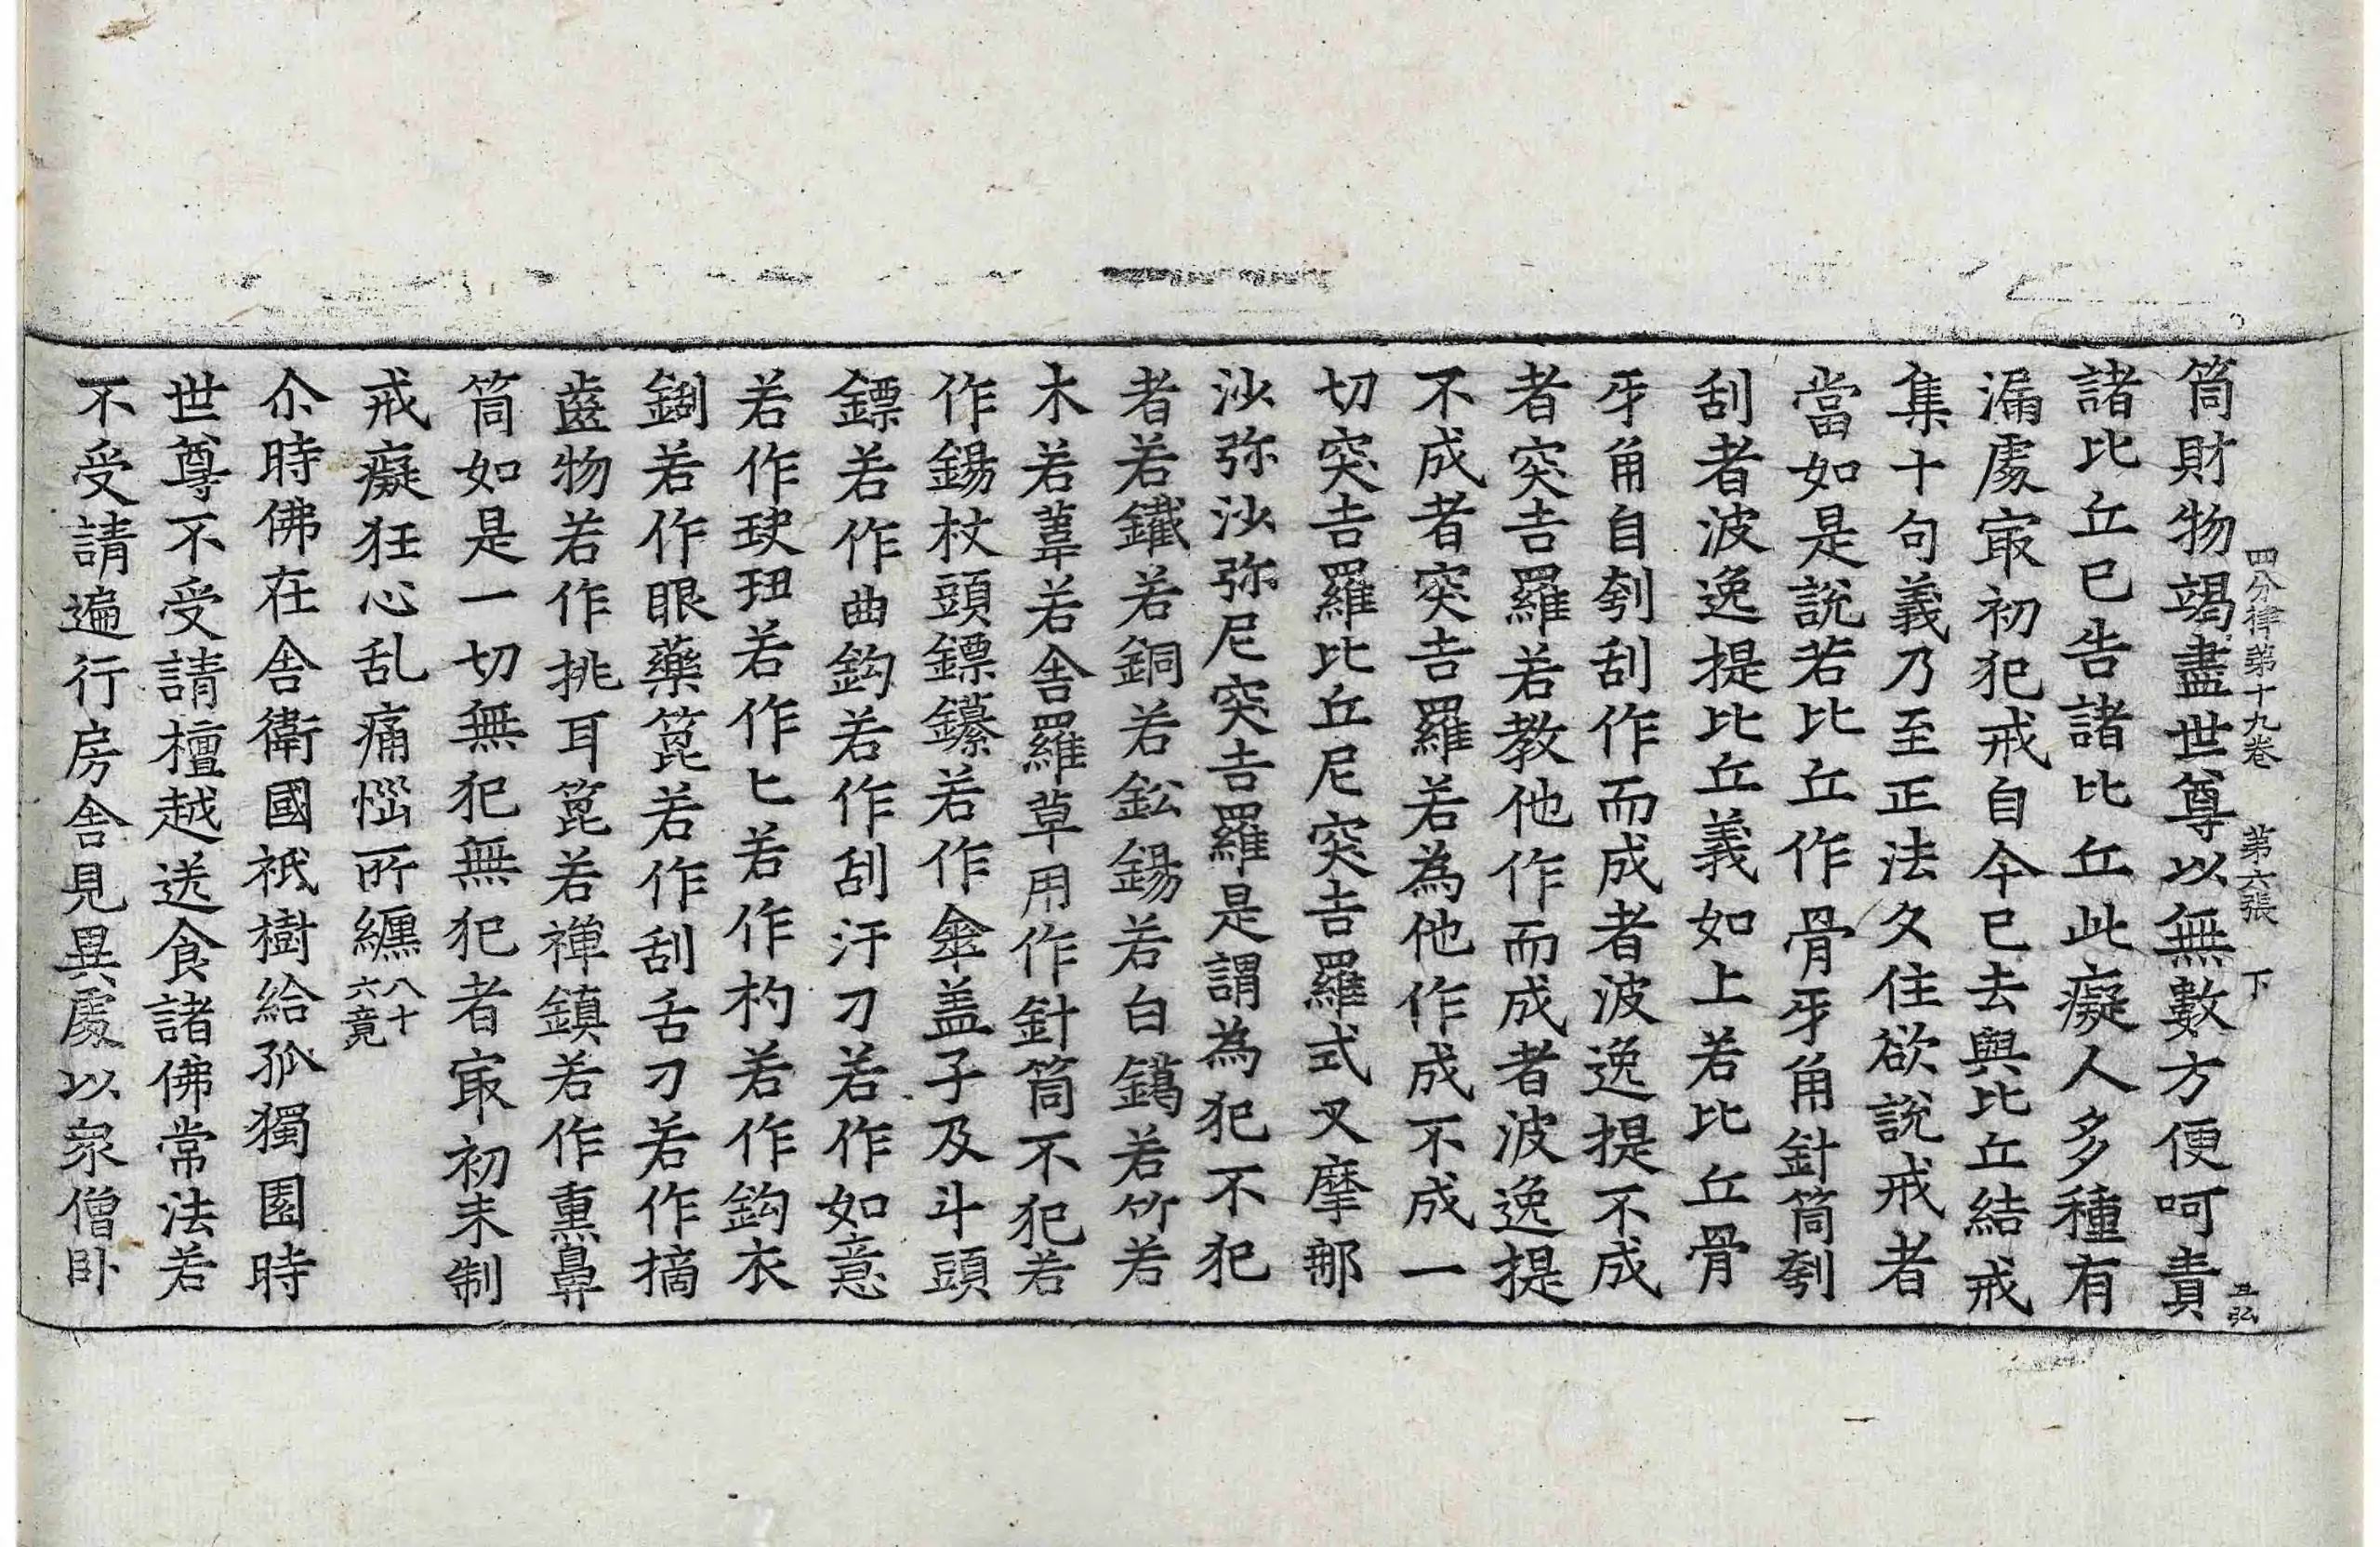 四分律第十九卷　第六張　下
筒財物竭盡世尊以無數方便呵責
諸比丘已告諸比丘此癡人多種有
漏處冣初犯戒自今已去與比丘結戒
集十句義乃至正法久住欲說戒者
當如是說若比丘作骨牙角針筒刳
刮者波逸提比丘義如上若比丘骨
牙角自刳刮作而成者波逸提不成
者突吉羅若教他作而成者波逸提
不成者突吉羅若為他作成不成一
切突吉羅比丘尼突吉羅式叉摩那
沙弥沙弥尼突吉羅是謂為犯不犯
者若鐵若銅若鈆錫若白鑞若竹若
木若葦若舍羅草用作針筒不犯若
作錫杖頭鏢鑽若作傘盖子及斗頭
鏢若作曲鈎若作刮汗刀若作如意
若作玦玾若作匕若作杓若作鈎衣
若作眼藥篦若作刮舌刀若作摘
齒物若作挑耳篦若禪鎮若作熏鼻
筒如是一切無犯無犯者冣初未制
戒癡狂心乱痛惱所纏八十六竟
尒時佛在舍衛國祇樹給孤獨園時
世尊不受請檀越送食諸佛常法若
不受請遍行房舍見異處以衆僧卧